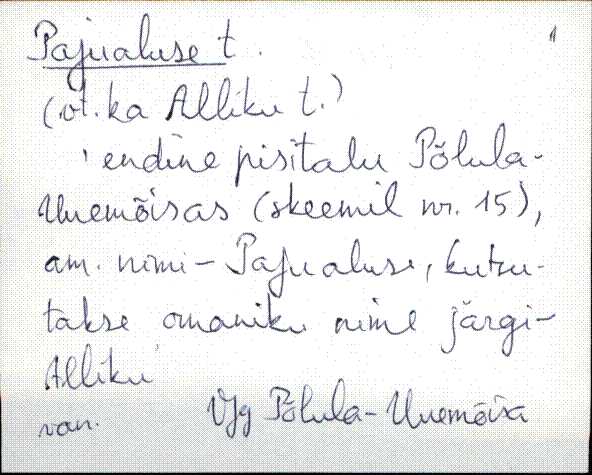 Pajualuse t.
(vt. ka Alliku t.)
'endine pisitalu Põlula-
Uuemõisas (skeemil nr. 15),
am. nimi - Pajualuse, kutsu-
takse omaniku nime järgi -
Alliku'
van. VJg Põlula-Uuemõisa